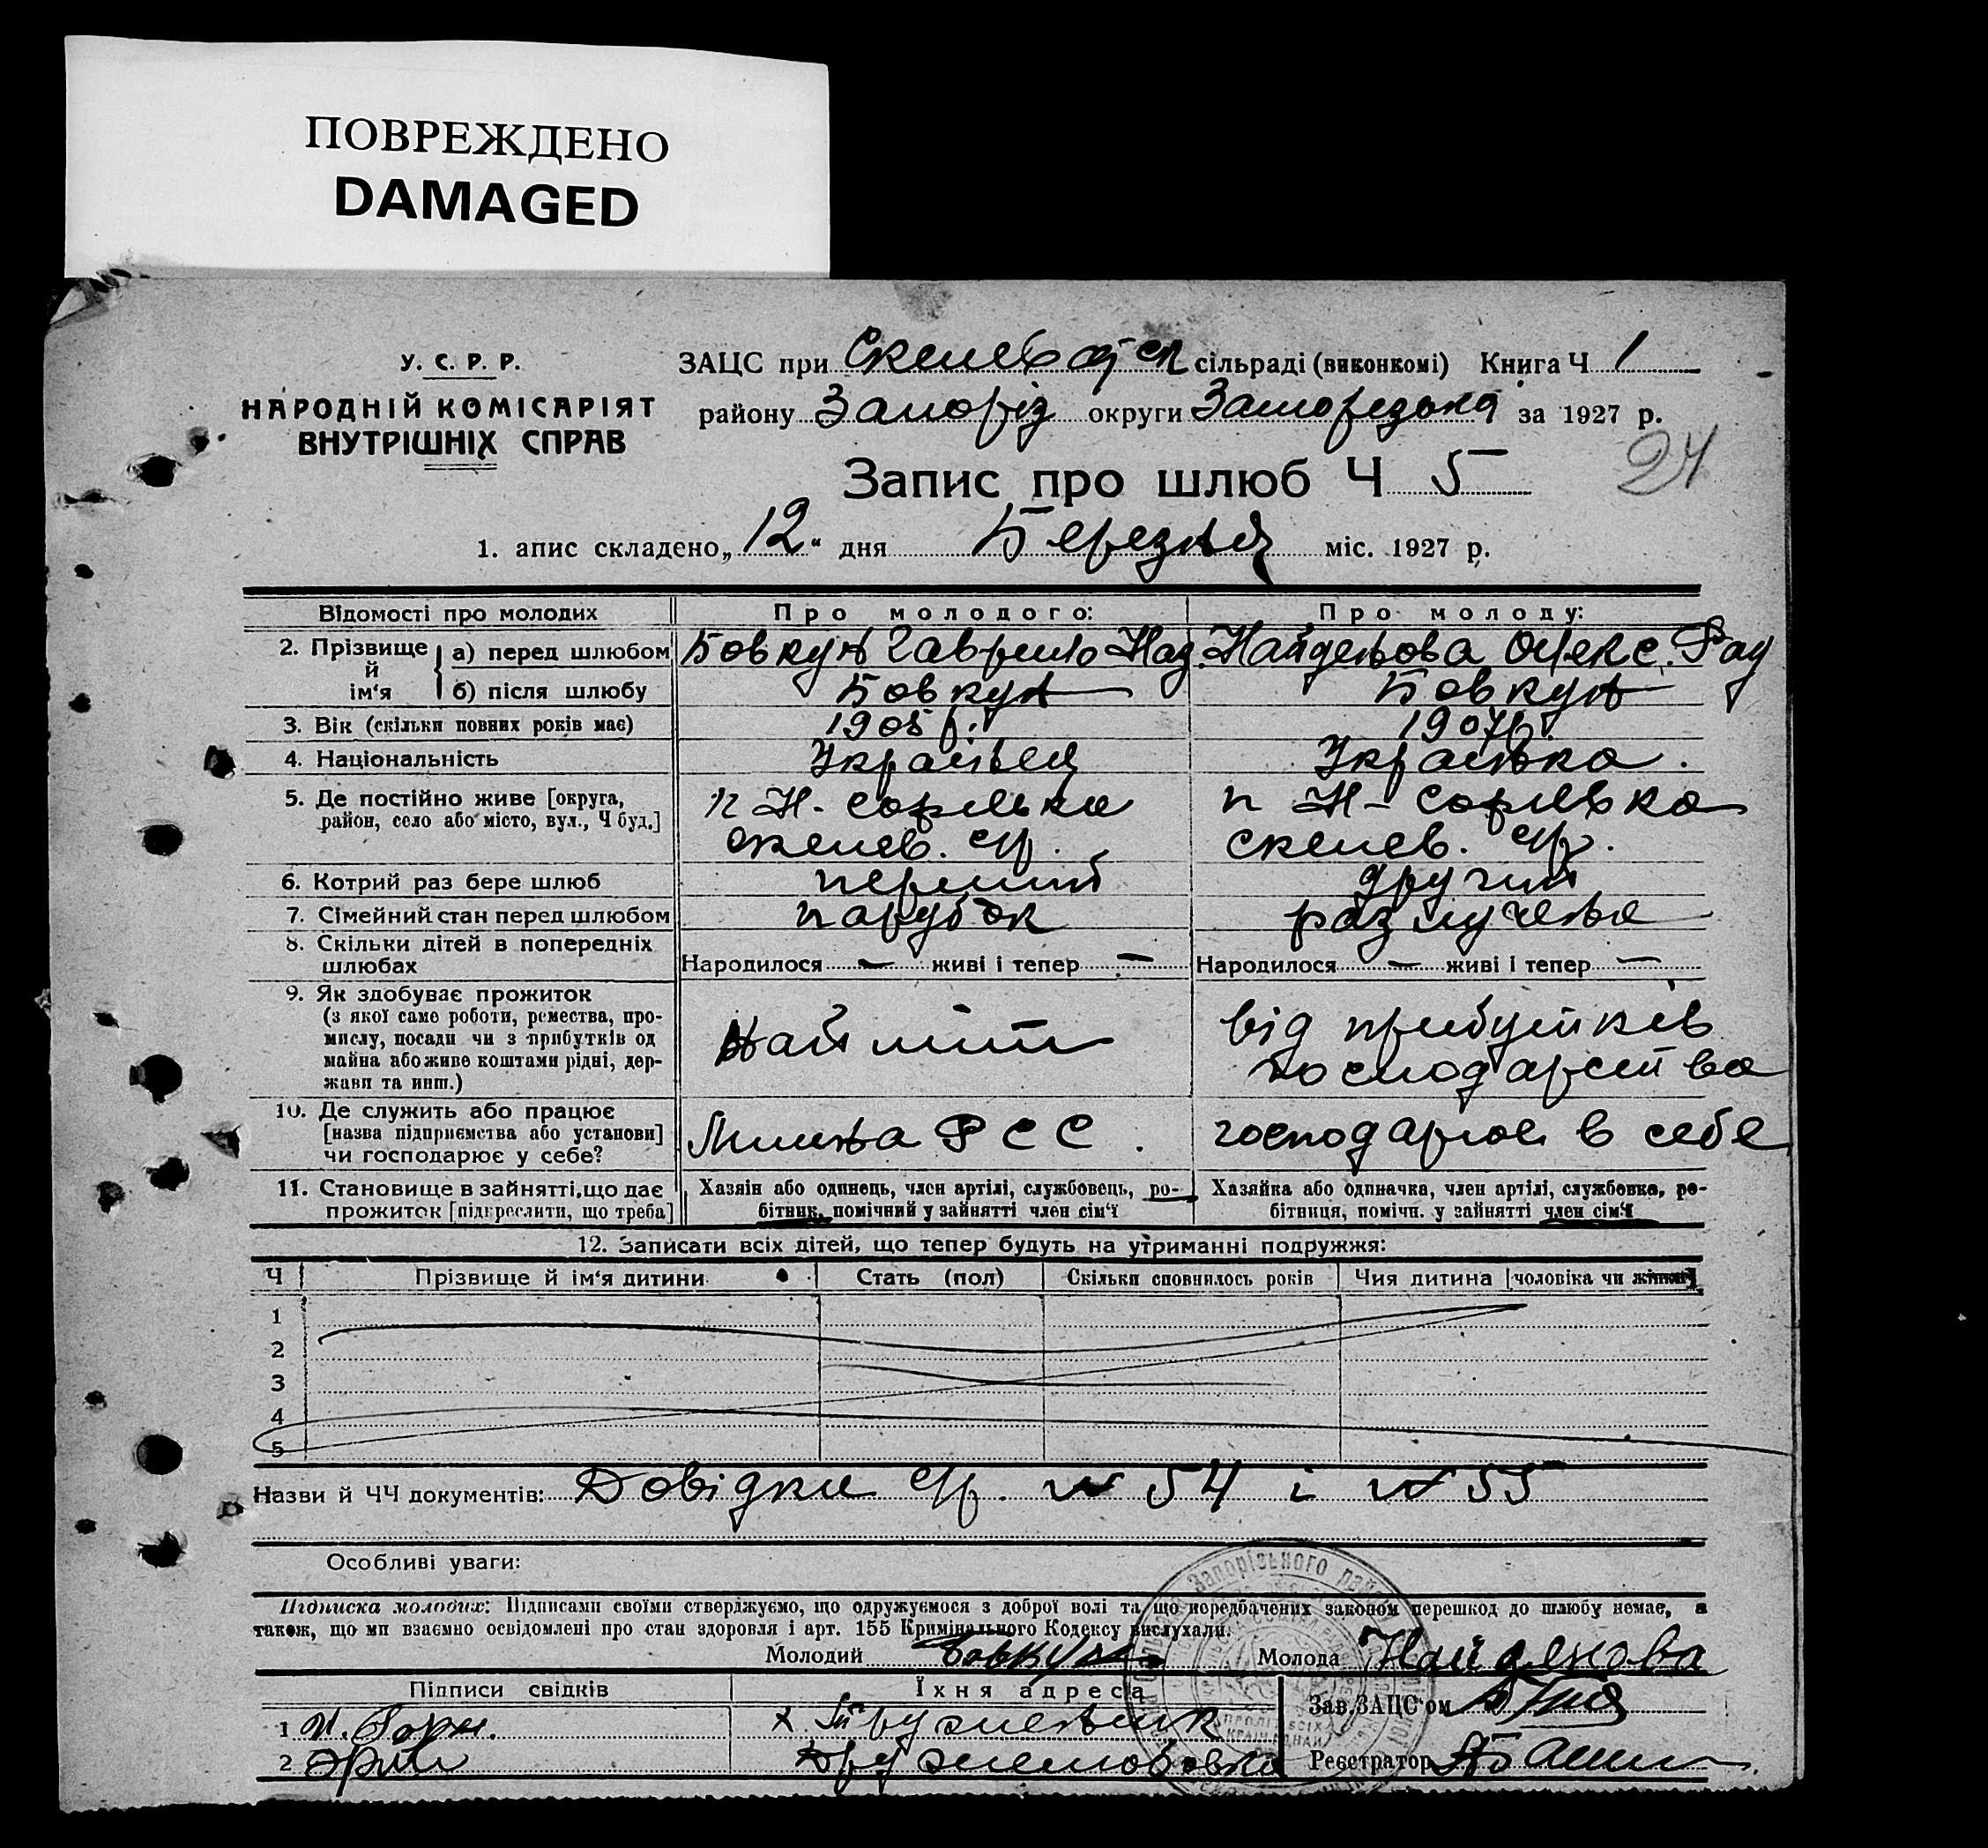 ПОВРЕЖДЕНО
DAMAGED
У. С. Р. Р.
НАРОДНІЙ КОМІСАРІЯТ
ВНУТРІШНІХ СПРАВ
ЗАЦС при сільраді (виконкомі) Книга Ч 1
району Запоріз округи Запорізька за 1927 р.
24
Запис про шлюб Ч 5
1. апис складено „12“ дня Березня міс. 1927 р.
Відомості про молодих Про молодого: Про молоду:
2. Прізвище й ім‘я а) перед шлюбом Бовкун Гаврило Наз. Найденова Олекс.
б) після шлюбу Бовкун Бовкун
3. Вік (скільки повних років має) 1905 р. 1907 р.
4. Національність Українець Українка.
5. Де постійно живе [округа,
район, село або місто, вул., Ч буд.]
п Н-
скелев. с/р.
п Н-
скелев. с/р.
6. Котрий раз бере шлюб перший другий
7. Сімейний стан перед шлюбом парубок разлучена
8. Скільки дітей в попередніх
шлюбах Народилося — живі і тепер — Народилося — живі і тепер —
9. Як здобуває прожиток
(з якої саме роботи, ремества, про-
мислу, посади чи з прибутків од
майна або живе коштами рідні, дер-
жави та инш.)
наймит
від прибутків
господарства
10. Де служить або працює
[назва підприємства або установи]
чи господарює у себе?
РСС.
господарює в себе
11. Становище в зайнятті, що дає
прожиток [підкреслити, що треба]
Хазяін або одинець, член артілі, службовець, ро-
бітник, помічний у зайнятті член сім‘ї
Хазяйка або одиначка, член артілі, службовка, ро-
бітниця, помічн. у зайнятті член сім‘ї
12. Записати всіх дітей, що тепер будуть на утриманні подружжя:
Ч Прізвище й ім‘я дитини Стать (пол) Скільки сповнилось років Чия дитина [чоловіка чи жінки]
1
2
3
4
5
Назви й ЧЧ документів: Довідки с/р. № 54 і № 55
Особливі уваги:
Підписка молодих: Підписами своїми стверджуємо, що одружуємося з доброї волі та що передбачених законом перешкод до шлюбу немає, а
також, що ми взаємно освідомлені про стан здоровля і арт. 155 Кримінального Кодексу вислухали.
Молодий Бовкун Молода Найденова
Підписи свідків Їхня адреса Зав. ЗАЦС‘ом
1
2 Реєстратор
Запорізького